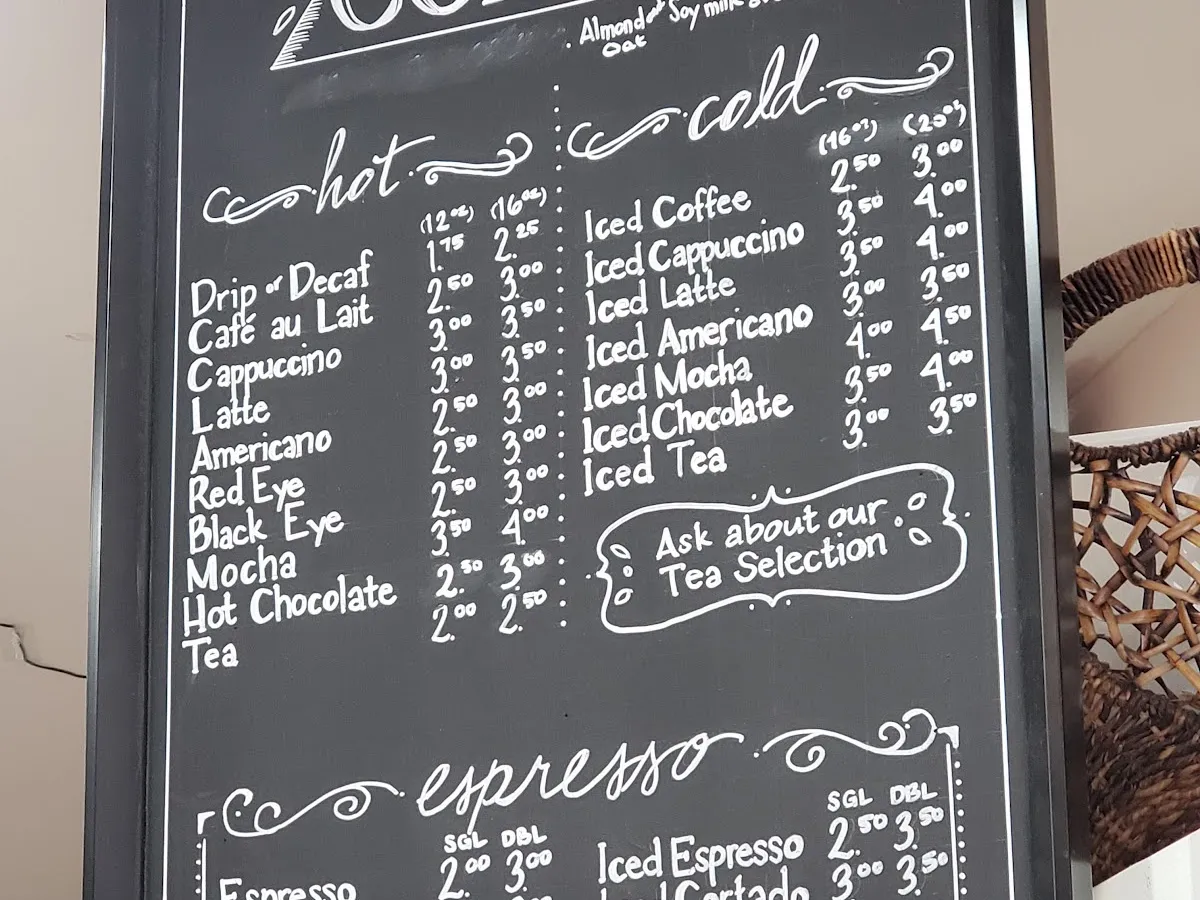 Almond Soy milk
Oat
hot
(12oz) (16oz)
Drip or Decaf 1.75 2.25
Café au Lait 2.50 3.00
Cappuccino 3.00 3.50
Latte 3.00 3.50
Americano 2.50 3.00
Red Eye 2.50 3.00
Black Eye 2.50 3.00
Mocha 3.50 4.00
Hot Chocolate 2.50 3.00
Tea 2.00 2.50
cold
(16oz) (20oz)
Iced Coffee 2.50 3.00
Iced Cappuccino 3.50 4.00
Iced Latte 3.50 4.00
Iced Americano 3.00 3.50
Iced Mocha 4.00 4.50
Iced Chocolate 3.50 4.00
Iced Tea 3.00 3.50
Ask about our
Tea Selection
espresso
SGL DBL
Espresso 2.00 3.00
SGL DBL
Iced Espresso 2.50 3.50
Iced Cortado 3.00 3.50